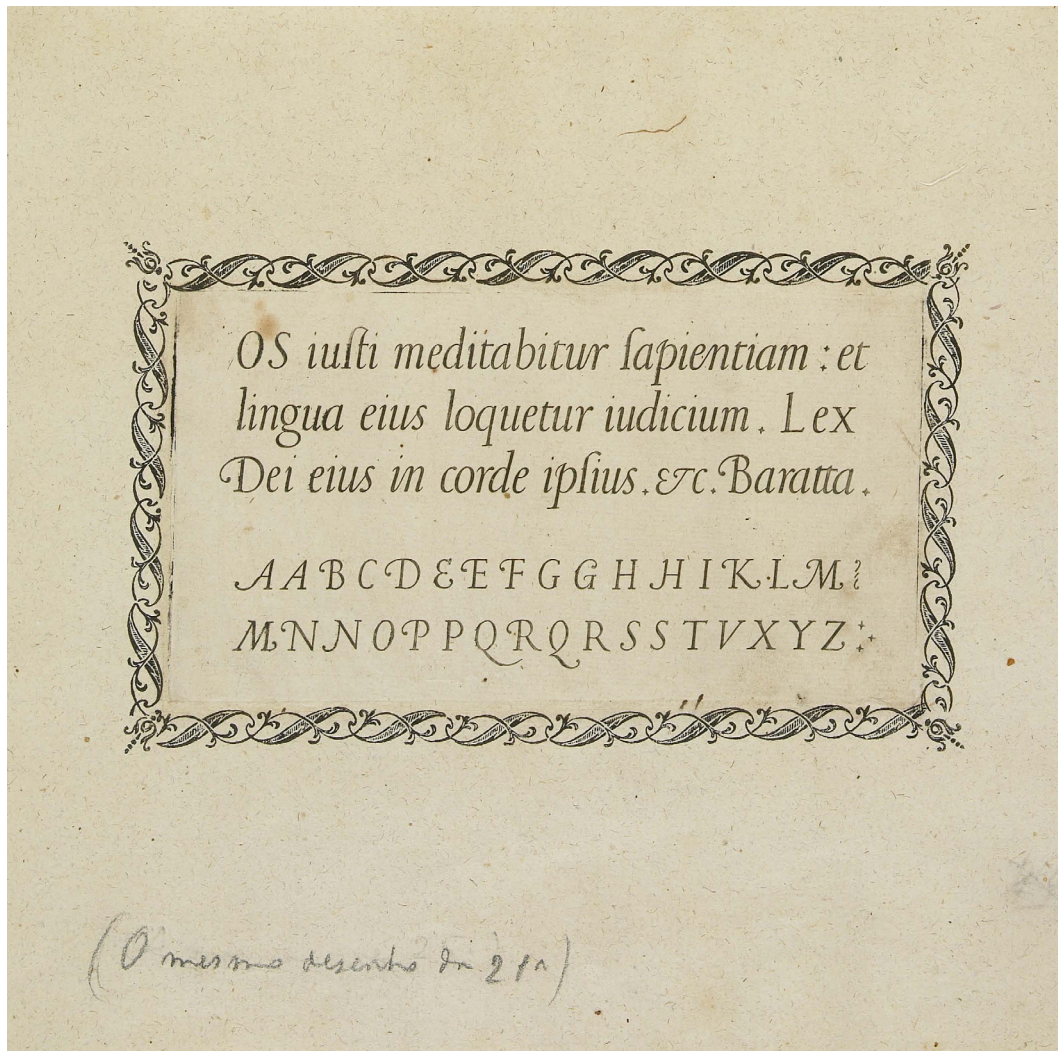 OS iuſti meditabitur ſapientiam : et
lingua eius loquetur iudicium . Lex
Dei eius in corde ipſius . &c . Baratta .
A A B C D E E F G G H H I K L M
M N N O P P Q R Q R S S T V X Y Z :
(O mesmo desenho da 2